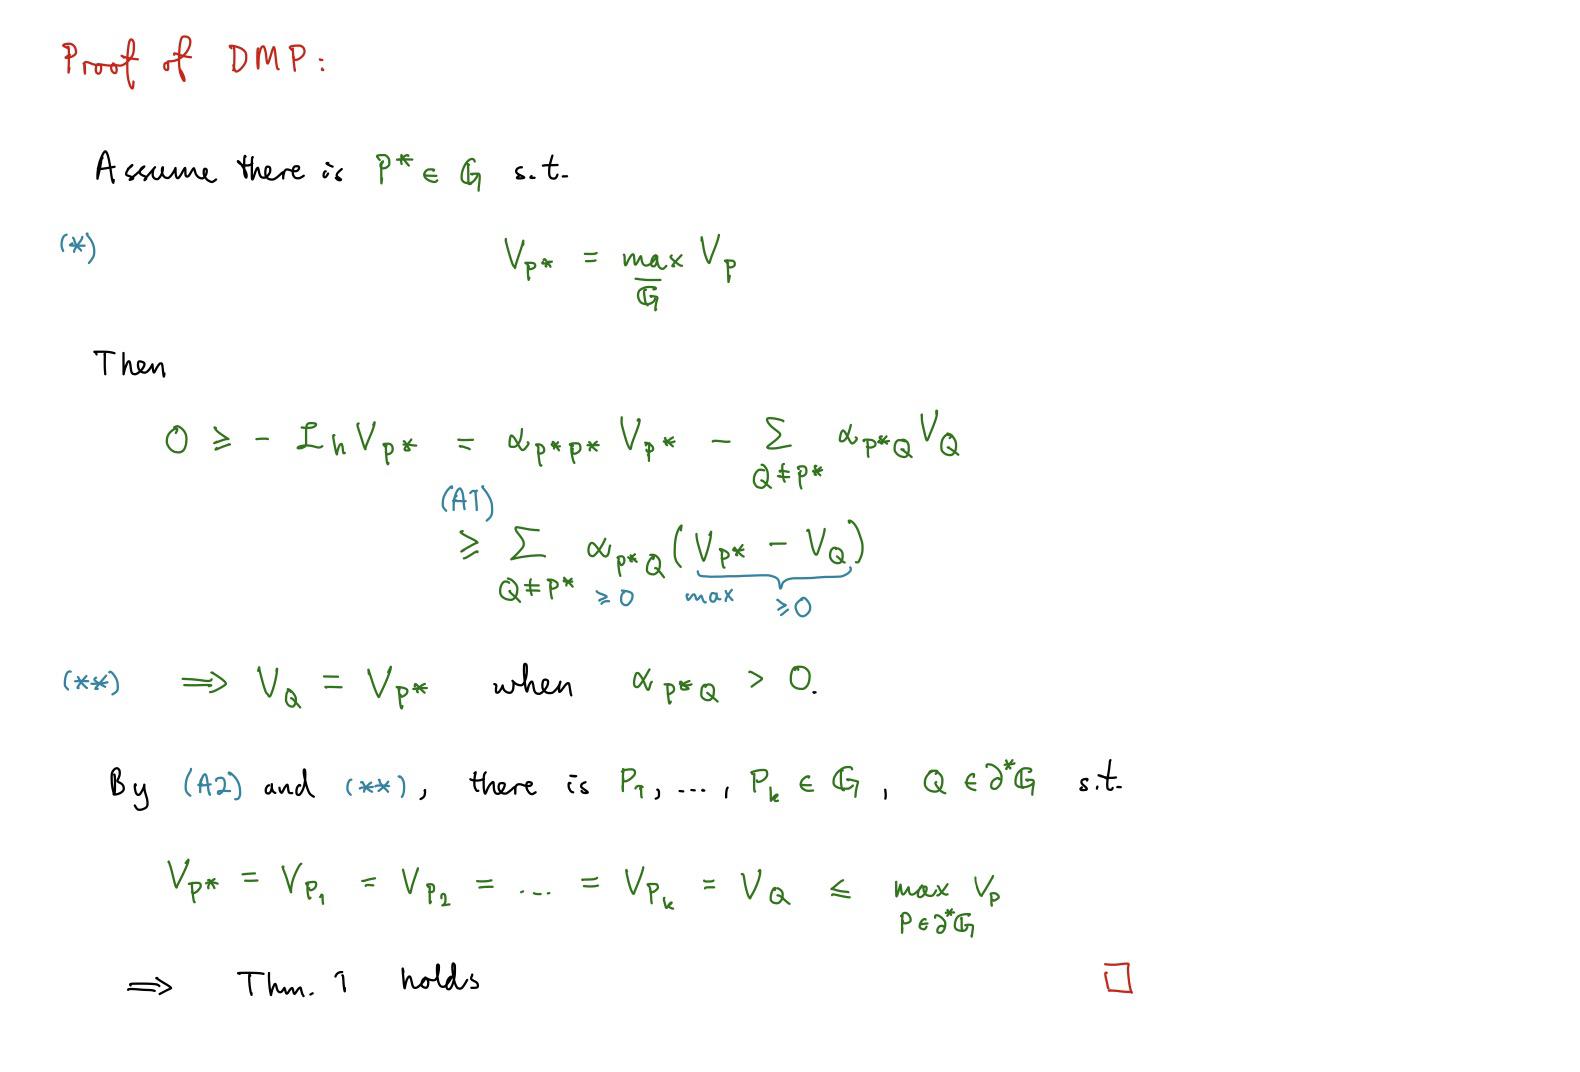 Proof of DMP:
Assume there is P* ∈ 𝔾 s.t.
(*) V_{P*} = max_{\overline{𝔾}} V_P
Then
0 ≥ - ℒ_h V_{P*} = α_{P*P*} V_{P*} - Σ_{Q≠P*} α_{P*Q} V_Q
(A1)
≥ Σ_{Q≠P*} α_{P*Q} (V_{P*} - V_Q)
≥0 max ≥0
(**) ⟹ V_Q = V_{P*} when α_{P*Q} > 0.
By (A2) and (**), there is P_1, ..., P_k ∈ 𝔾, Q ∈ ∂*𝔾 s.t.
V_{P*} = V_{P_1} = V_{P_2} = ... = V_{P_k} = V_Q ≤ max_{P∈∂*𝔾} V_P
⟹ Thm. 1 holds □